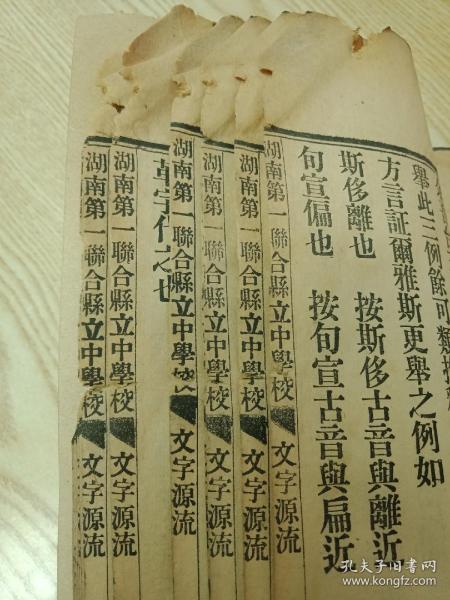 舉此三例餘可類推
方言証爾雅斯更舉之例如
斯侈離也　按斯侈古音與離近
句宣徧也　按句宣古音與扁近
湖南第一聯合縣立中學校　文字源流
湖南第一聯合縣立中學校　文字源流
湖南第一聯合縣立中學校　文字源流
湖南第一聯合縣立中學校　文字源流
草字代之也
湖南第一聯合縣立中學校　文字源流
湖南第一聯合縣立中學校　文字源流
孔夫子旧书网
www.kongfz.com